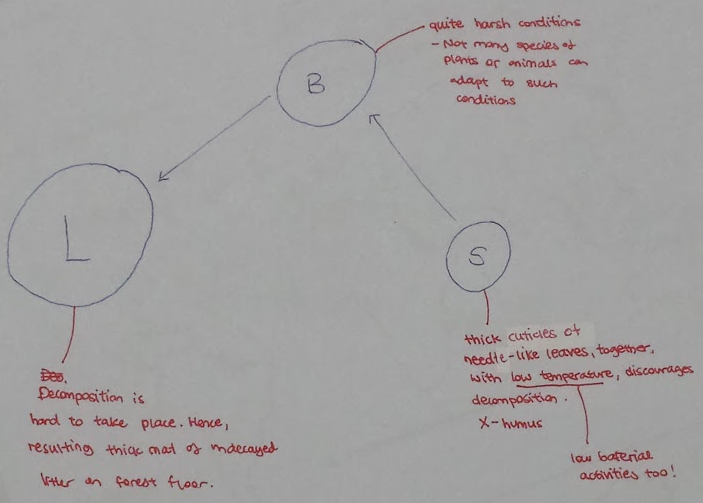 quite harsh conditions
- Not many species of
plants or animals can
adapt to such
conditions
B
L
S
thick cuticles of
needle-like leaves, together,
with low temperature, discourages
decomposition.
X-humus
low baterial
activities too!
Decomposition is
hard to take place. Hence,
resulting thick mat of undecayed
litter on forest floor.